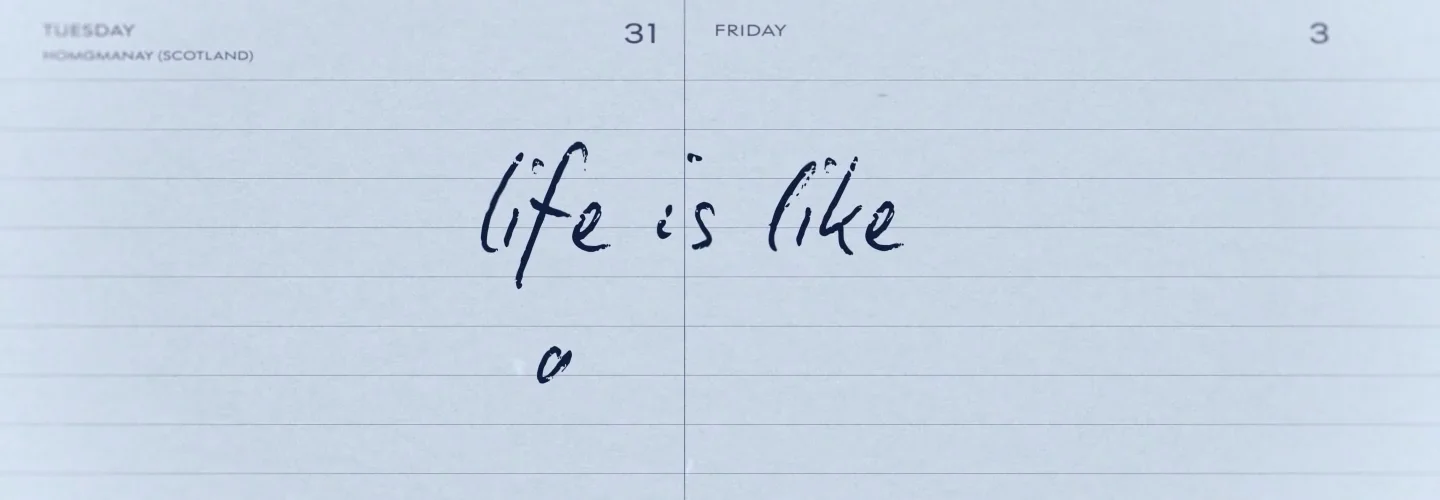 TUESDAY 31 FRIDAY 3
HOMGMANAY (SCOTLAND)
life is like
a